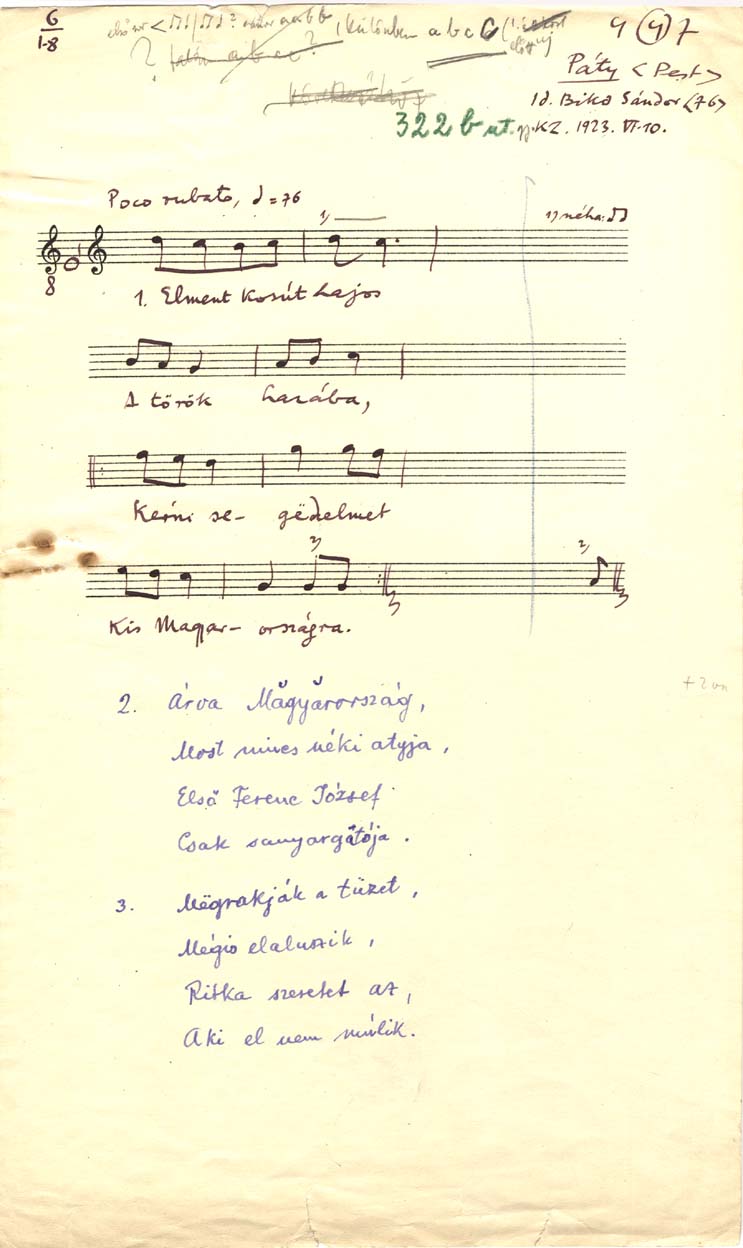 6
1-8
első sor
különben a b c C
4 (4) 7
? talán a b c c?
előtt új
Páty <Pest>
Id. Biko Sándor <76>
322 b ut. KZ. 1923. VI. 10.
Poco rubato, = 76
1)
1) néha:
8
1. Elment Kosút Lajos
A török hazába,
Kérni se- gëdelmet
2)
2)
Kis Magyar- országra.
2. Árva Magyarország,
Most nincs néki atyja,
Első Ferenc József
Csak sanyargatója.
3. Mëgrakják a tüzet,
Mégis elaluszik,
Ritka szeretet az,
Aki el nem múlik.